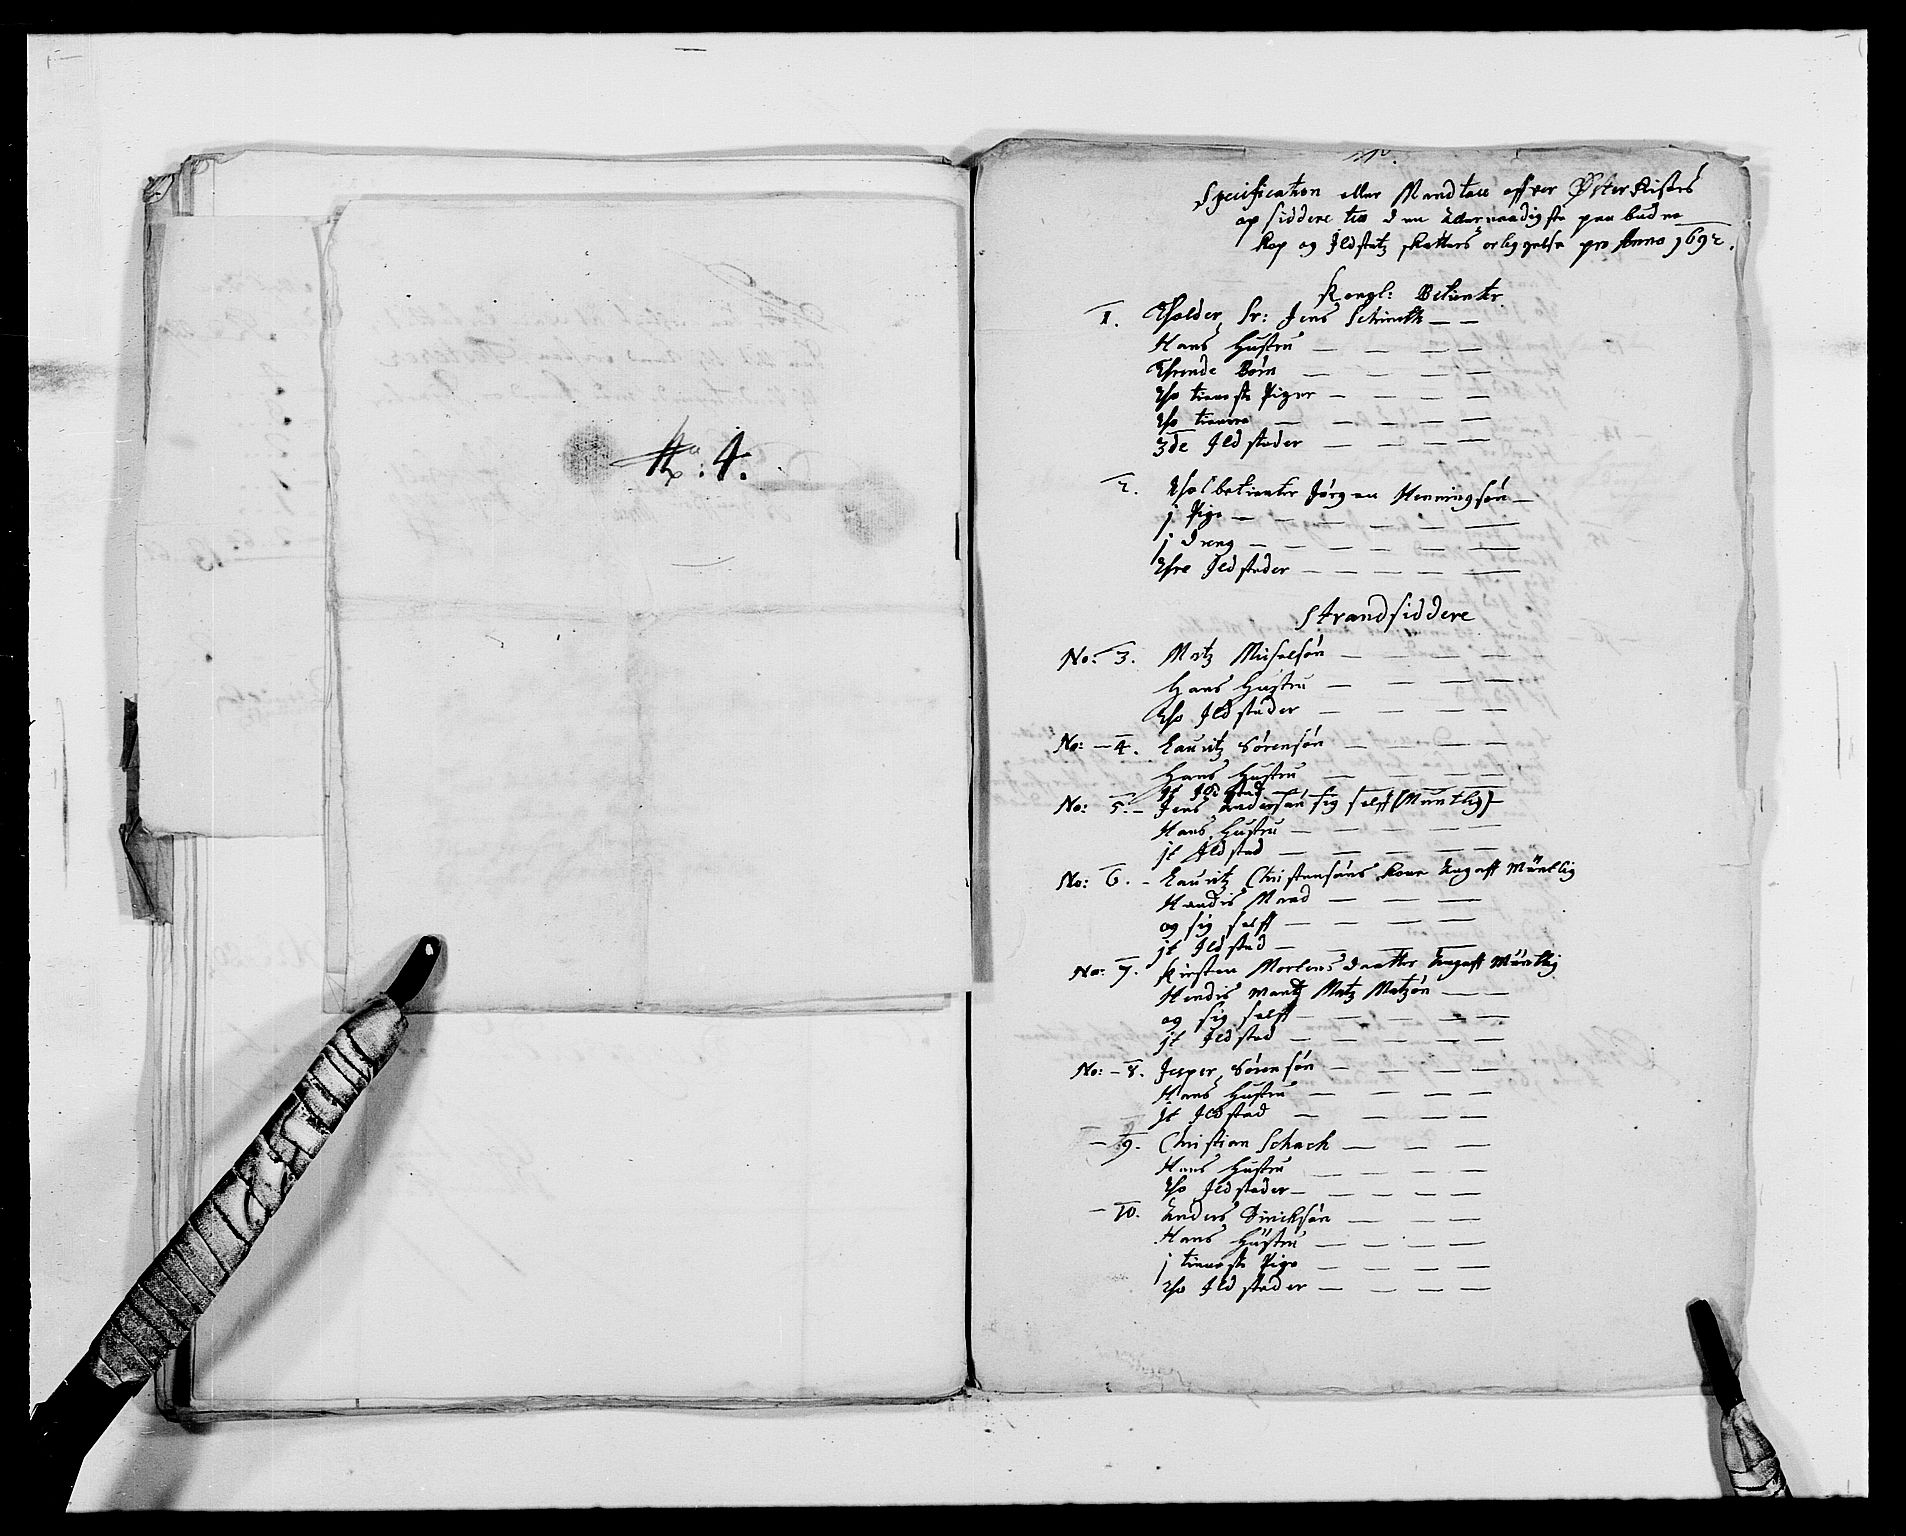 No: 4.
Specification eller Mandtall offver Østerrisers
op siddere till den allernaadigste paa budne
Kop og Ildsteds skatters erleggelse pro Anno 1692.
Kongl: Betienter
1. Tholder Sr: Jens — —
Hans Hustru — — — —
Thrende Børn — — — —
Tho tieneste Piger — — — —
Tho tienere — — — —
3de Ildsteder — — — —
2. Tholbetienter Jørgen Henningsøn —
j Pige — — — — — —
j dreng — — — — — —
Thre Ildsteder — — — — —
Strandsiddere
No: 3. Matz Michelsøn — — — —
Hans Hustru — — — —
Tho Ildsteder — — — —
No: — 4. Lauritz Sørensøn — — — —
Hans Hustru — — — —
jt Ildsted — — — —
No: 5. — Jens Andersøn sig self (Muntlig)
Hans Hustru — — — — —
jt Ildsted — — — — —
No: 6. — Lauritz Christensøns kone angaff Müntlig
Hendis Mand — — — —
og sig self — — — —
jt Ildsted — — — —
No: 7. Kirsten Mortens daatter angaff Müntlig
Hendis Mand Matz Matzøn — —
og sig self — — — —
jt Ildsted — — — — —
No: — 8. Jesper Sørensøn — — — —
Hans Hustru — — — —
jt Ildsted — — — —
— 9. Christian Schach — — — —
Hans Hustru — — — —
Tho Ildsteder — — — —
— 10. Anders Dirichsøn — — —
Hans Hüstru — — — —
j tieneste Pige — — — —
Tho Ildsteder — — — —